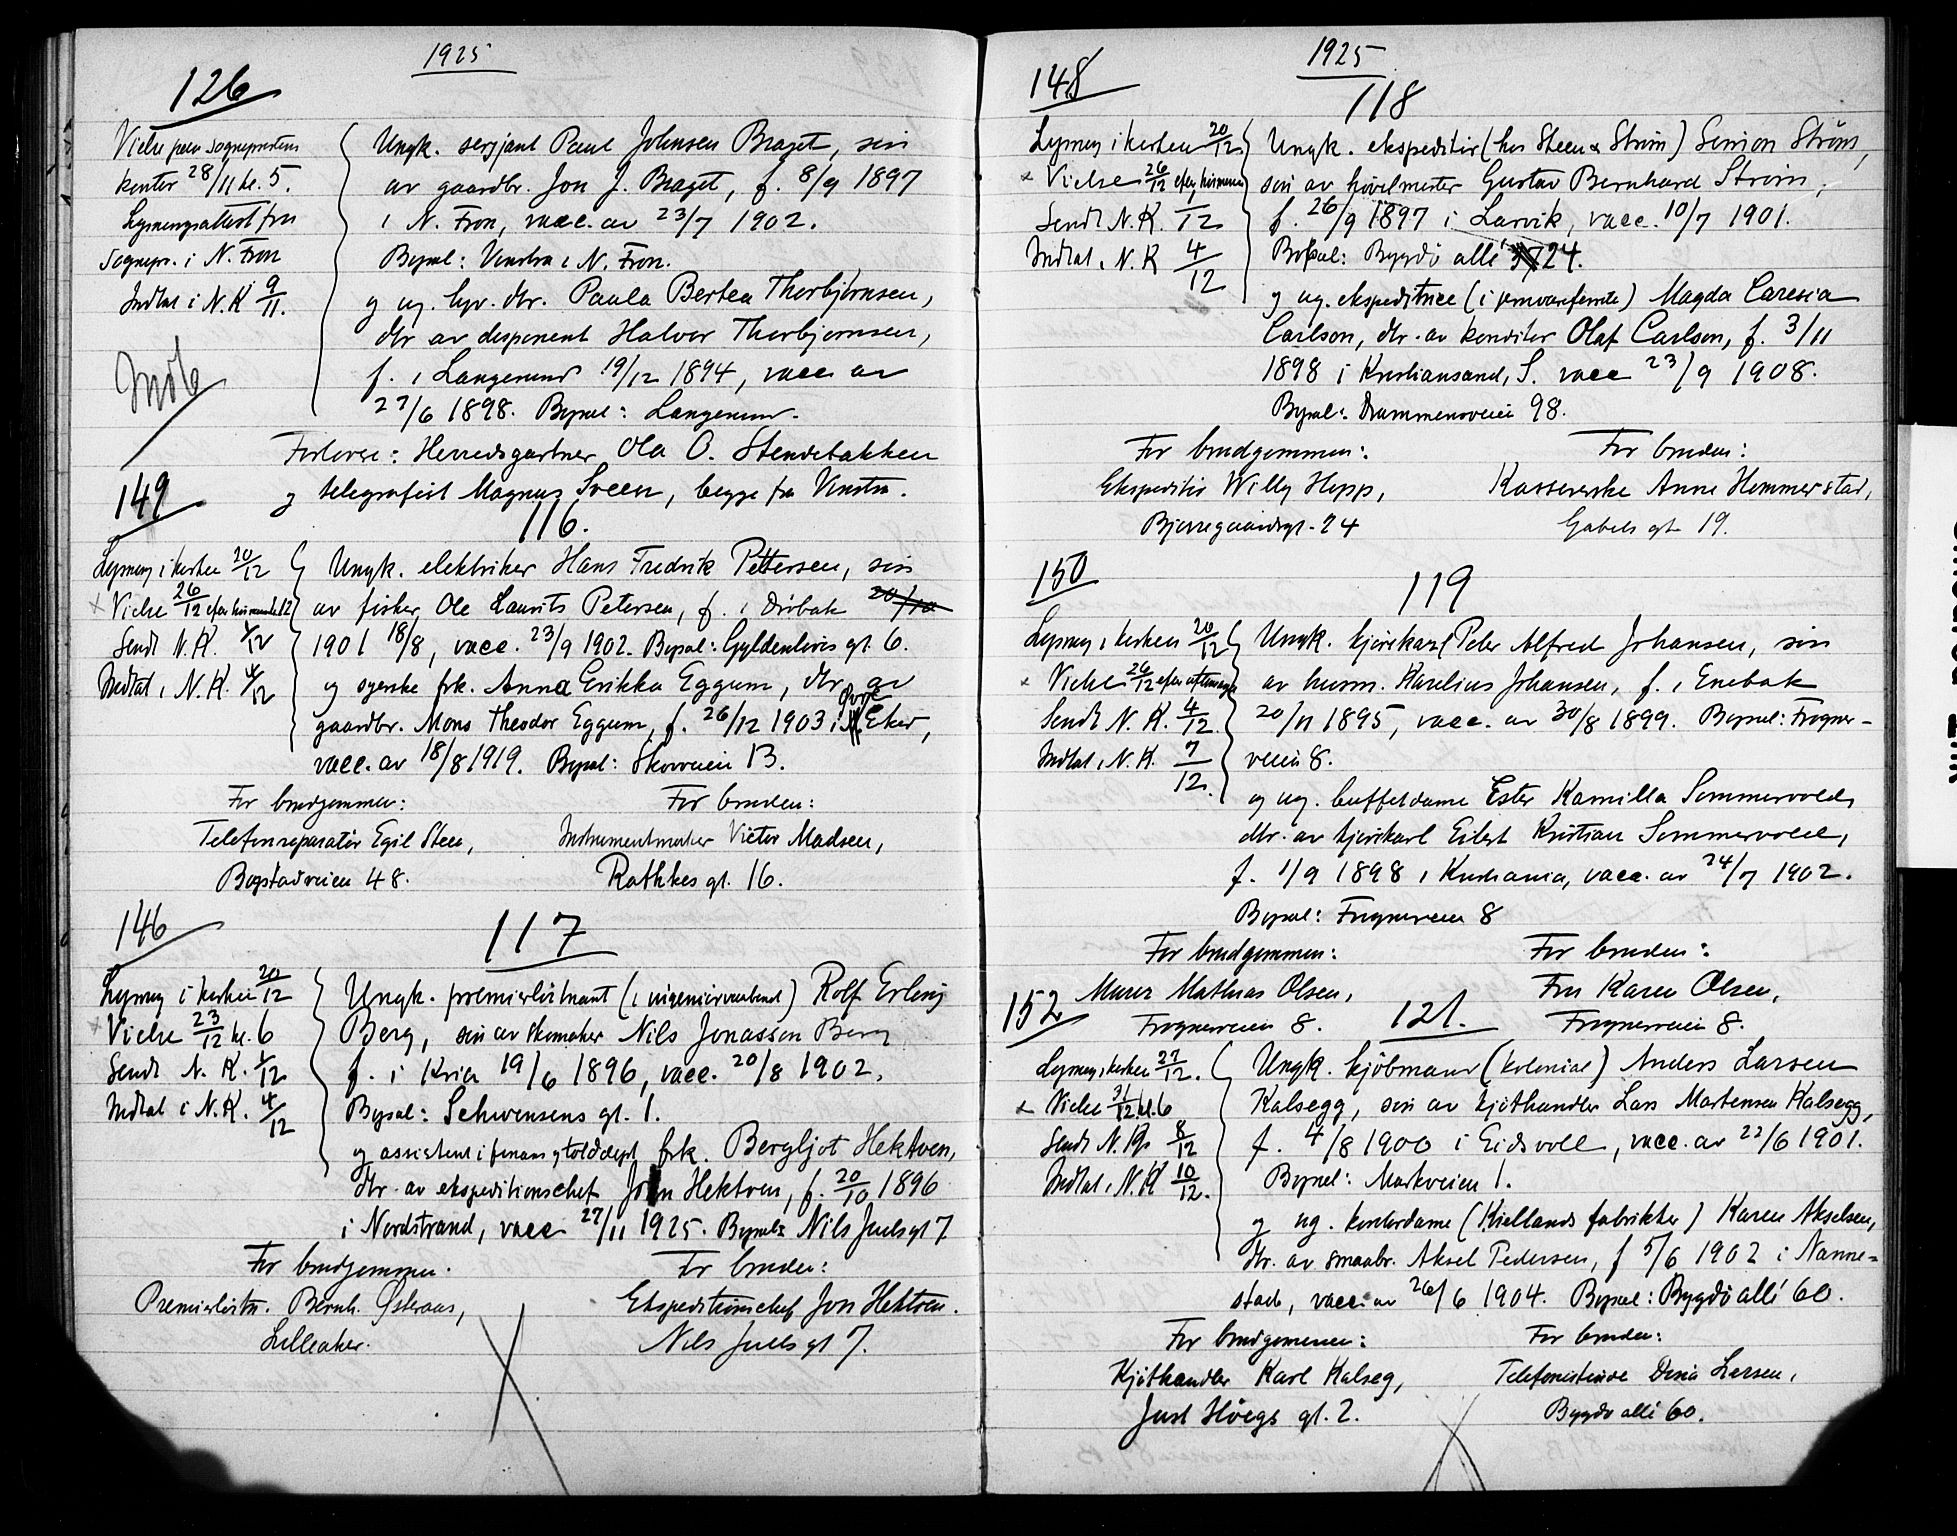 1925
126
Vielse paa sogneprestens
kontor 28/11 kl. 5.
Lysningsattest fra
sognepr. i N. Fron
Indtat i N. K 9/11.
Ungk. serjant Paul Johnsen Braget, søn
av gaardbr. Jon J. Braget, f. 8/9 1897
i N. Fron, vacc. av 23/7 1902.
Bopæl: Vinstra i N. Fron.
og ug. hr. dtr. Paula Bertea Thorbjørnsen,
dtr av disponent Halvor Thorbjørnsen,
f. i Langesund 19/12 1894, vacc av
27/6 1898. Bopæl: Langesund.
Forlovere: Herredsgartner Ola O. Stendebakken
og telegrafist Magnus Sveen, begge fra Vinstra.
149
116.
Lysning i kirken 20/12
x Vielse 26/12 efter høimessen kl 2
Sendt N. K. 1/12
Indtat i N. K. 4/12
Ungk. elektriker Hans Fredrik Pettersen, søn
av fisker Ole Laurits Petersen, f. i Drøbak 20/10
1901 18/8, vacc. 23/9 1902. Bopæl: Gyldenløves gt. 6.
og syerske frk. Anna Erikka Eggum, dtr av
gaardbr. Mons Theodor Eggum, f. 26/12 1903 i Øvre Eker,
vacc. av 18/8 1919. Bopæl: Skovveien 13.
For brudgommen: For bruden:
Telefonreparatør Egil Steen, Instrumentmaker Victor Madsen,
Bogstadveien 48. Rathkes gt. 16.
146
117
Lysning i kirken 20/12
x Vielse 23/12 kl. 6
Sendt N. K. 1/12
Indtat i N. K. 4/12
Ungk. premierløitnant (i ingeniørvaabnet) Rolf Erling
Berg, søn av skomaker Nils Jonassen Berg
f. i Kria 19/6 1896, vacc. 20/8 1902.
Bopæl: Schwensens gt. 1.
og assistent i finans og tolddept frk. Bergljot Hektoen,
dtr. av ekspeditionschef Jon Hektoen, f. 20/10 1896
i Nordstrand, vacc 27/11 1925. Bopæl: Nils Juels gt 7
For brudgommen. For bruden:
Premierløitn. Bernh. Østeraas, Ekspeditionschef Jon Hektoen.
Lilleaker. Nils Juels gt 7.
1925
148
118
Lysning i kirken 20/12
x Vielse 26/12 efter høimessen
Sendt N. K. 1/12
Indtat i N. K 4/12
Ungk. ekspeditør (hos Steen & Strøm) Simon Strøm,
søn av høvelmester Gustav Bernhard Strøm,
f. 26/9 1897 i Larvik, vacc. 10/7 1901.
Bopæl: Bygdø allé 24.
og ug. ekspeditrice (i jernvareforretn) Magda Caresia
Carlson, dtr. av konditor Olaf Carlson, f. 3/11
1898 i Kristiansand, S. vacc 23/9 1908.
Bopæl: Drammensveien 98.
For brudgommen: For bruden:
Ekspeditør Willy Hopp, Kassererske Anne Hammerstad,
Bjerregaardsgt. 24 Gabels gt 19.
150
119
Lysning i kirken 20/12
x Vielse 26/12 efter aftensang
Sendt N. K. 4/12.
Indtat i N. K. 7/12.
Ungk. kjørekar Peder Alfred Johansen, søn
av husm. Karelius Johansen, f. i Enebak
20/11 1895, vacc. av 30/8 1899. Bopæl: Frogner-
veien 8.
og ug. buffetdame Ester Kamilla Sommervold,
dtr. av kjørekarl Eilert Kristian Sommervold,
f. 1/9 1898 i Kristiania, vacc. av 24/7 1902.
Bopæl: Frognerveien 8
For brudgommen: For bruden:
Murer Mathias Olsen, Fru Karen Olsen,
Frognerveien 8. Frognerveien 8.
152
121.
Lysning i kirken 27/12.
x Vielse 31/12 kl. 6
Sendt N. K. 8/12
Indtat i N. K 10/12.
Ungk. kjøbmand (kolonial) Anders Larsen
Kalsegg, søn av kjøthandler Lars Martensen Kalsegg,
f. 4/8 1900 i Eidsvoll, vacc. av 22/6 1901.
Bopæl: Markveien 1.
og ug. kontordame (Kiellands fabrikker) Karen Akselsen,
dtr. av smaabr. Aksel Pedersen, f 5/6 1902 i Nanne-
stad, vacc. av 26/6 1904. Bopæl: Bygdø allé 60.
For brudgommen: For bruden:
Kjøthandler Karl Kalseg, Telefonistinde Dina Larsen,
Just Høegs gt. 2. Bygdø allé 60.